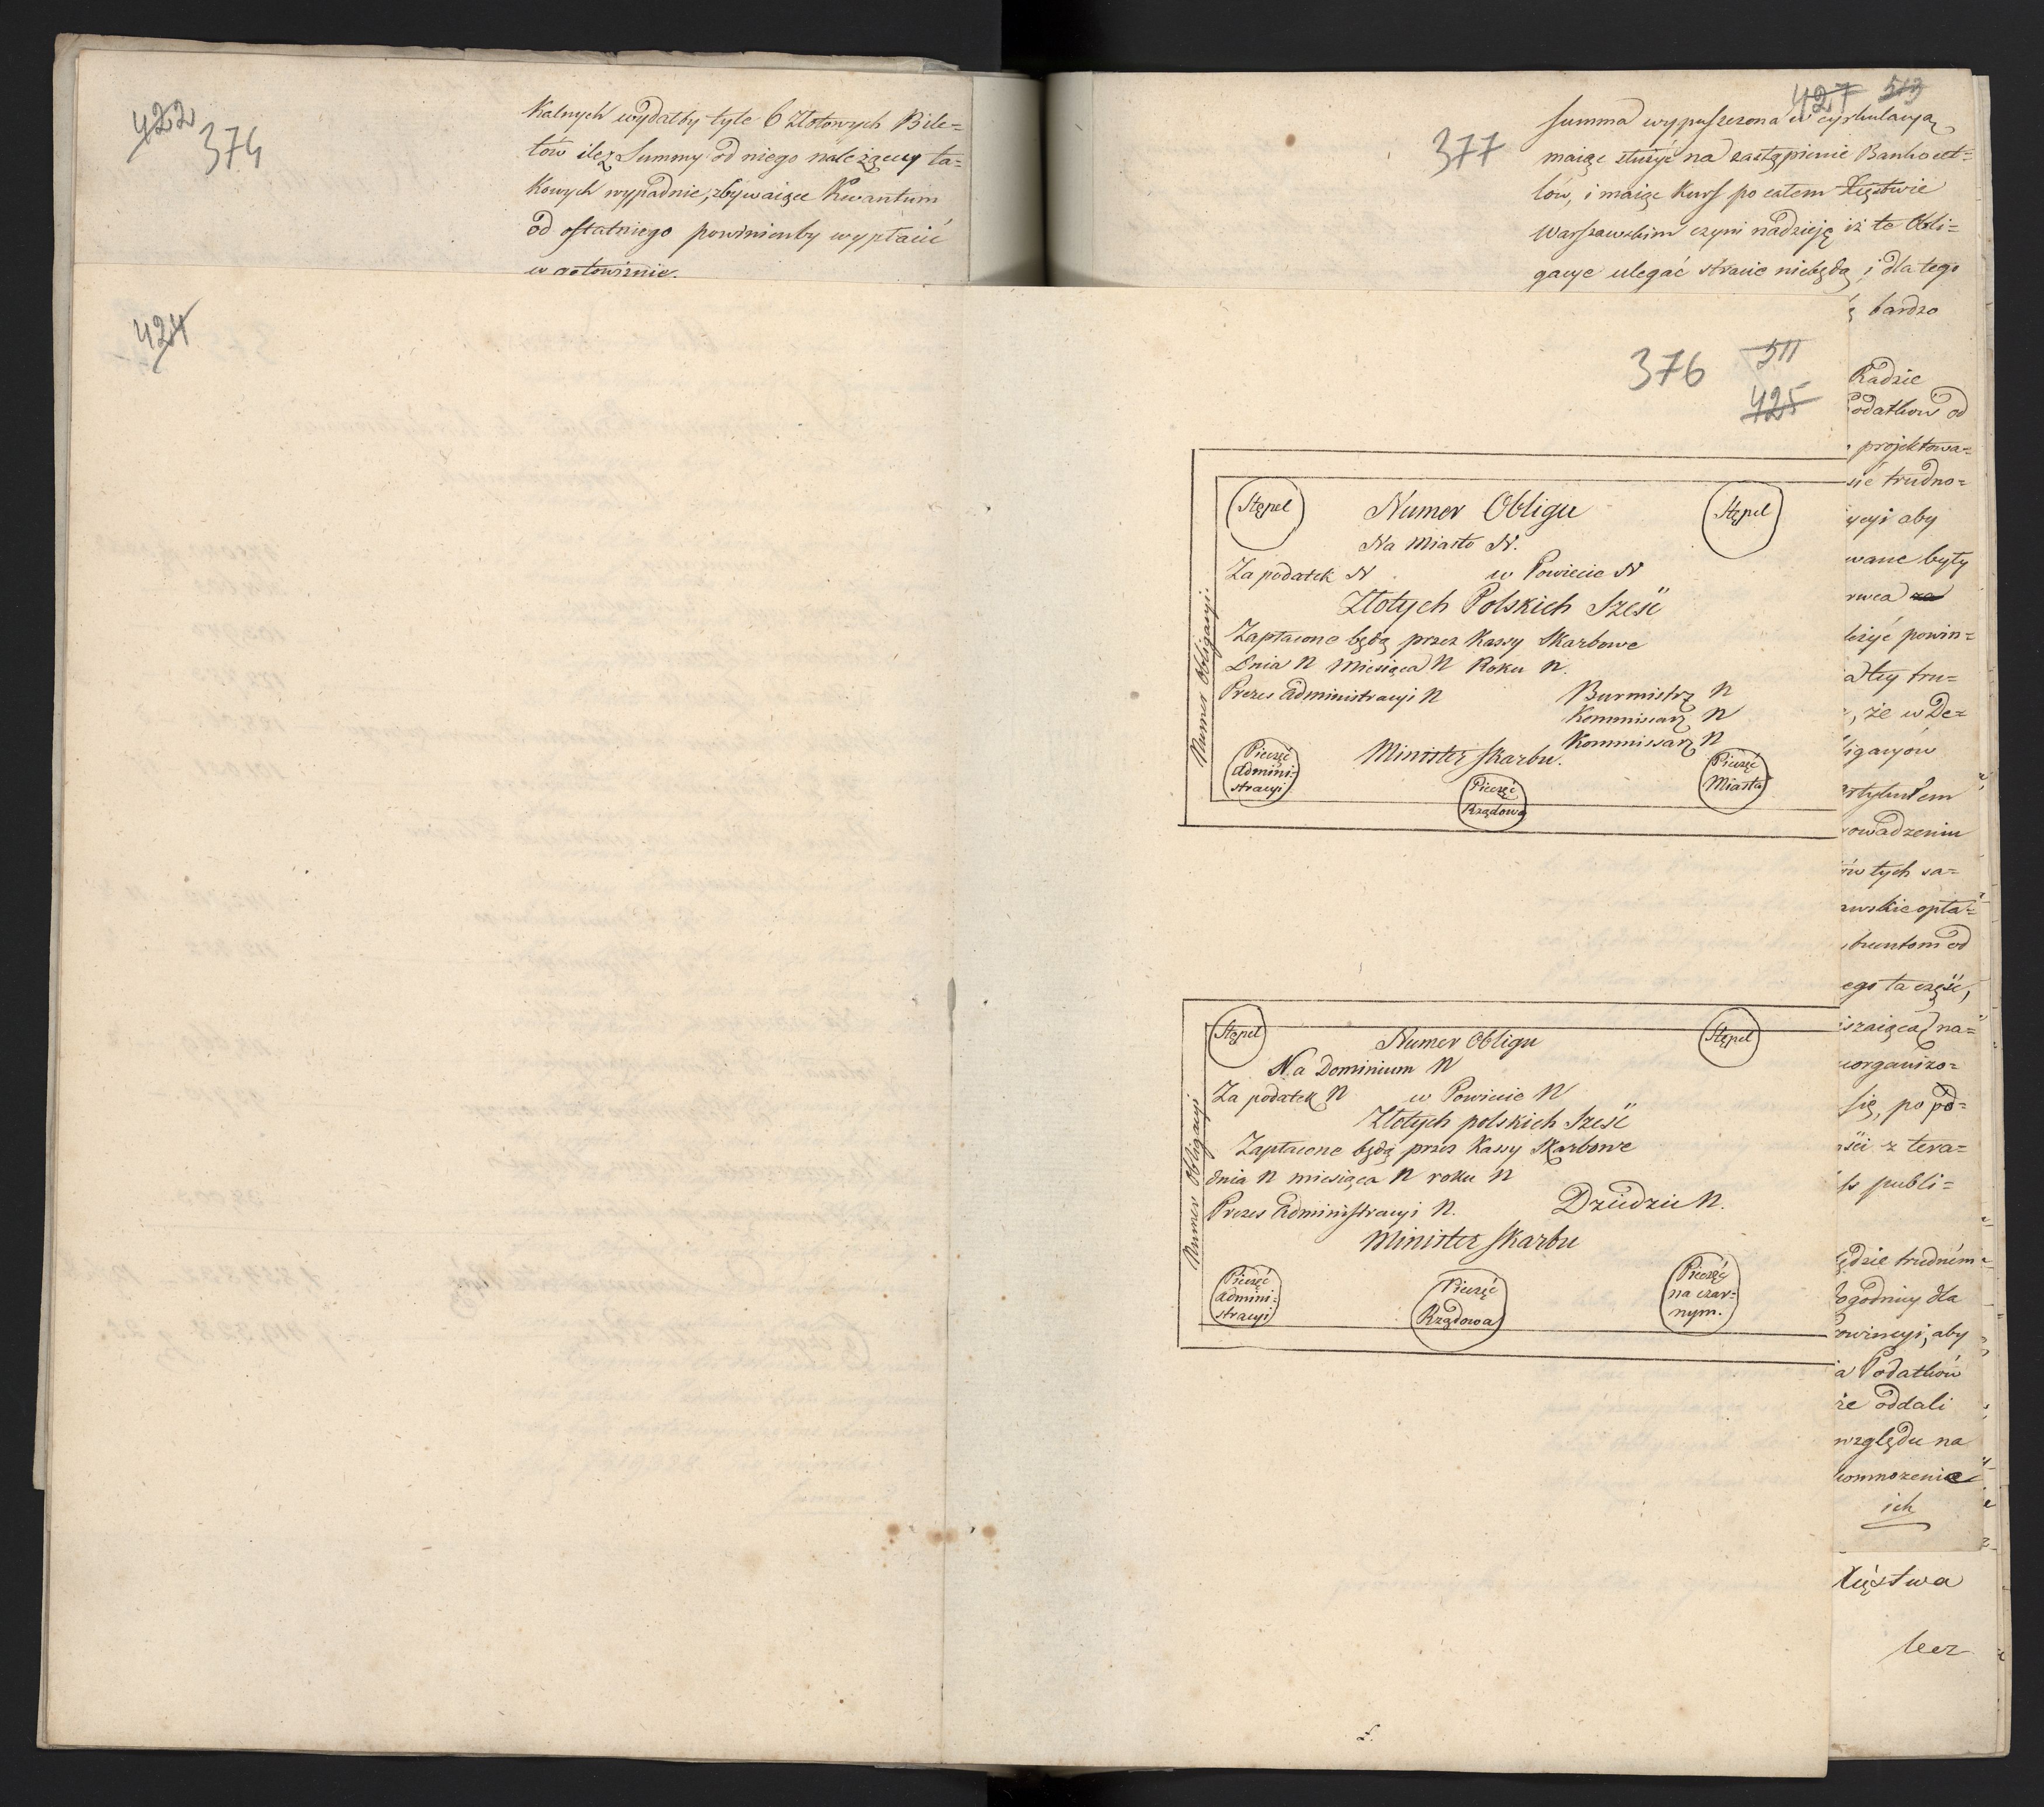 422
374
kalnych wydałby tyle 6 Złotowych Bile=
tów ile z Summy od niego należącey ta=
kowych wypadnie, zbywaiące Kwantum
od ostatniego powinienby wypłacić
w gotowiznie.
424
427 513
377
Summa wypuszczona w cyrkulacyą
maiąc służyć na zastąpienie Bankocet=
lów, i maiąc Kurs po całem Xięstwie
Warszawskim czyni nadzieję iż te Obli=
gacye ulegać stracie niebędą, i dla tego
376 511
425
Stępel
Numer Obligu
Stępel
Na Miasto N.
Za podatek N w Powiecie N
Złotych Polskich Sześć
Zapłacone będą przez Kassy Skarbowe
Dnia N Miesiąca N Roku N.
Prezes Administracyi N
Burmistrz N
Kommissarz N
Kommissarz N
Minister Skarbu.
Pieczęć
Admini=
stracyi
Pieczęć
Rządowa
Pieczęć
Miasta
Numer Obligacyi.
Stępel
Numer Obligu
Stępel
Na Dominium N
Za podatek N w Powiecie N
Złotych polskich Sześć
Zapłacone będą przez Kassy Skarbowe
dnia N miesiąca N roku N
Prezes Administracyi N. Dziedzic N.
Minister Skarbu
Pieczęć
Admini=
stracyi
Pieczęć
Rządowa
Pieczęć
na czar=
nym.
Numer Obligacyi
bardzo
Radzie
odatkow od
projektowa=
sić trudno=
ycyi aby
wane były
rwca za
leżyć powin=
a tey tru=
, że w De=
ligacyów
stylutem
owadzeniu
ów tych sa=
awskie opła=
buentom od
ego ta część,
szaiąca na=
uorganizo=
się, po pod=
ści z tera=
publi=
ędzie trudném
ogodniey dla
owincyi, aby
a Podatków
że oddali
względu na
komnożenie
ich
Xięstwa
lecz